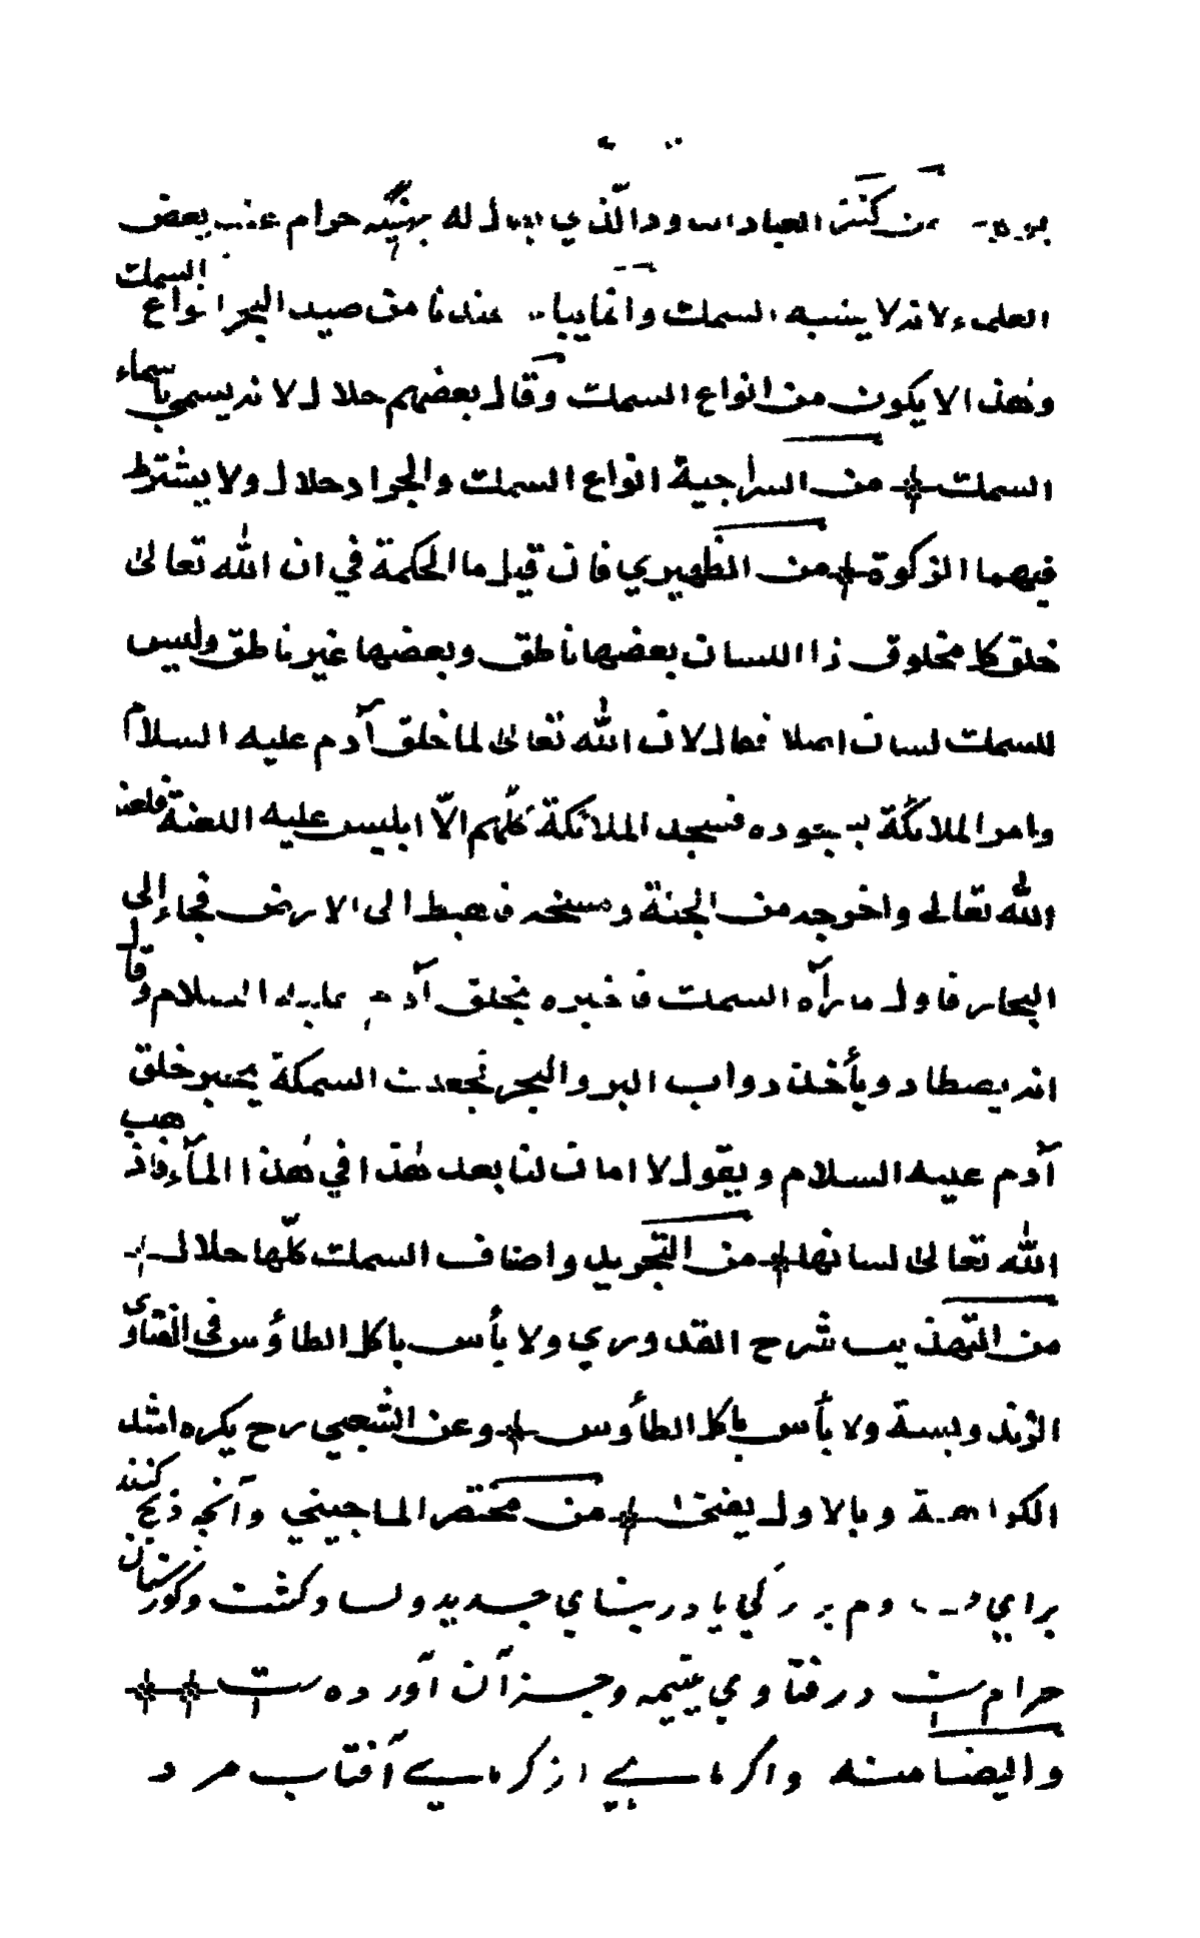 من كنز العباد ودا الذي يقال له حرام عند بعض
العلماء لانه لا يشبه السمك وانما يباح عندنا من صيد البحر انواع السمك
وهذا لا يكون من انواع السمك وقال بعضهم حلال لانه يسمي باسماء
السمك من السراجية انواع السمك والجراد حلال ولا يشترط
فيهما الذكوة من الظهيري فان قيل ما الحكمة في ان الله تعالى
خلق كل مخلوق ذا اللسان بعضها ناطق وبعضها غير ناطق وليس
للسمك لسان اصلا فقال لان الله تعالى لما خلق آدم عليه السلام
وامر الملائكة بسجوده فسجد الملائكة كلّهم الّا ابليس عليه اللعنة فلعنه
الله تعالى واخرجه من الجنة ومسخه فاهبط الى الارض فجاء إلى
البحار فاول ما رآه السمك فاخبره بخلق آدم عليه السلام وقال
انه يصطاد ويأخذ دواب البر والبحر فجعلت السمكة يخبر خلق
آدم عليه السلام ويقول لا امان لنا بعد هذا في هذا المآء فاذهب
الله تعالى لسانها من التجريد واصناف السمك كلّها حلال
من التهذيب شرح القدوري ولا بأس باكل الطاؤس في الفتاوى
الزندويسة ولا بأس باكل الطاؤس وعن الشعبي رح يكره اشد
الكراهة وبالاول يفتى من مختصر الماجيني وآنچه ذبح كنند
براي قدوم بزركي يا در بناي جديد ولسا وكشت وكورستان
حرام ست در فتاوي يتيمه وجز آن آورده ست
وايضا منه واكر ماهي از كرماي آفتاب مرد